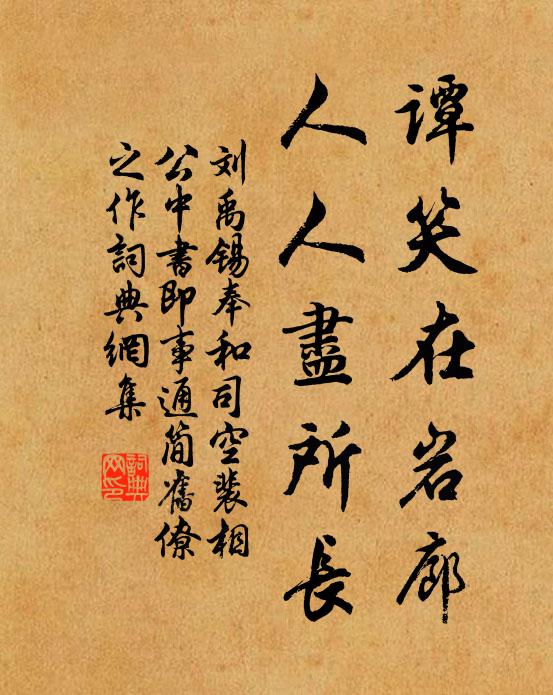 谭笑在岩廊
人人盡所長
刘禹锡奉和司空裴相
公中書即事通简舊僚
之作詞典網集
詞典网印